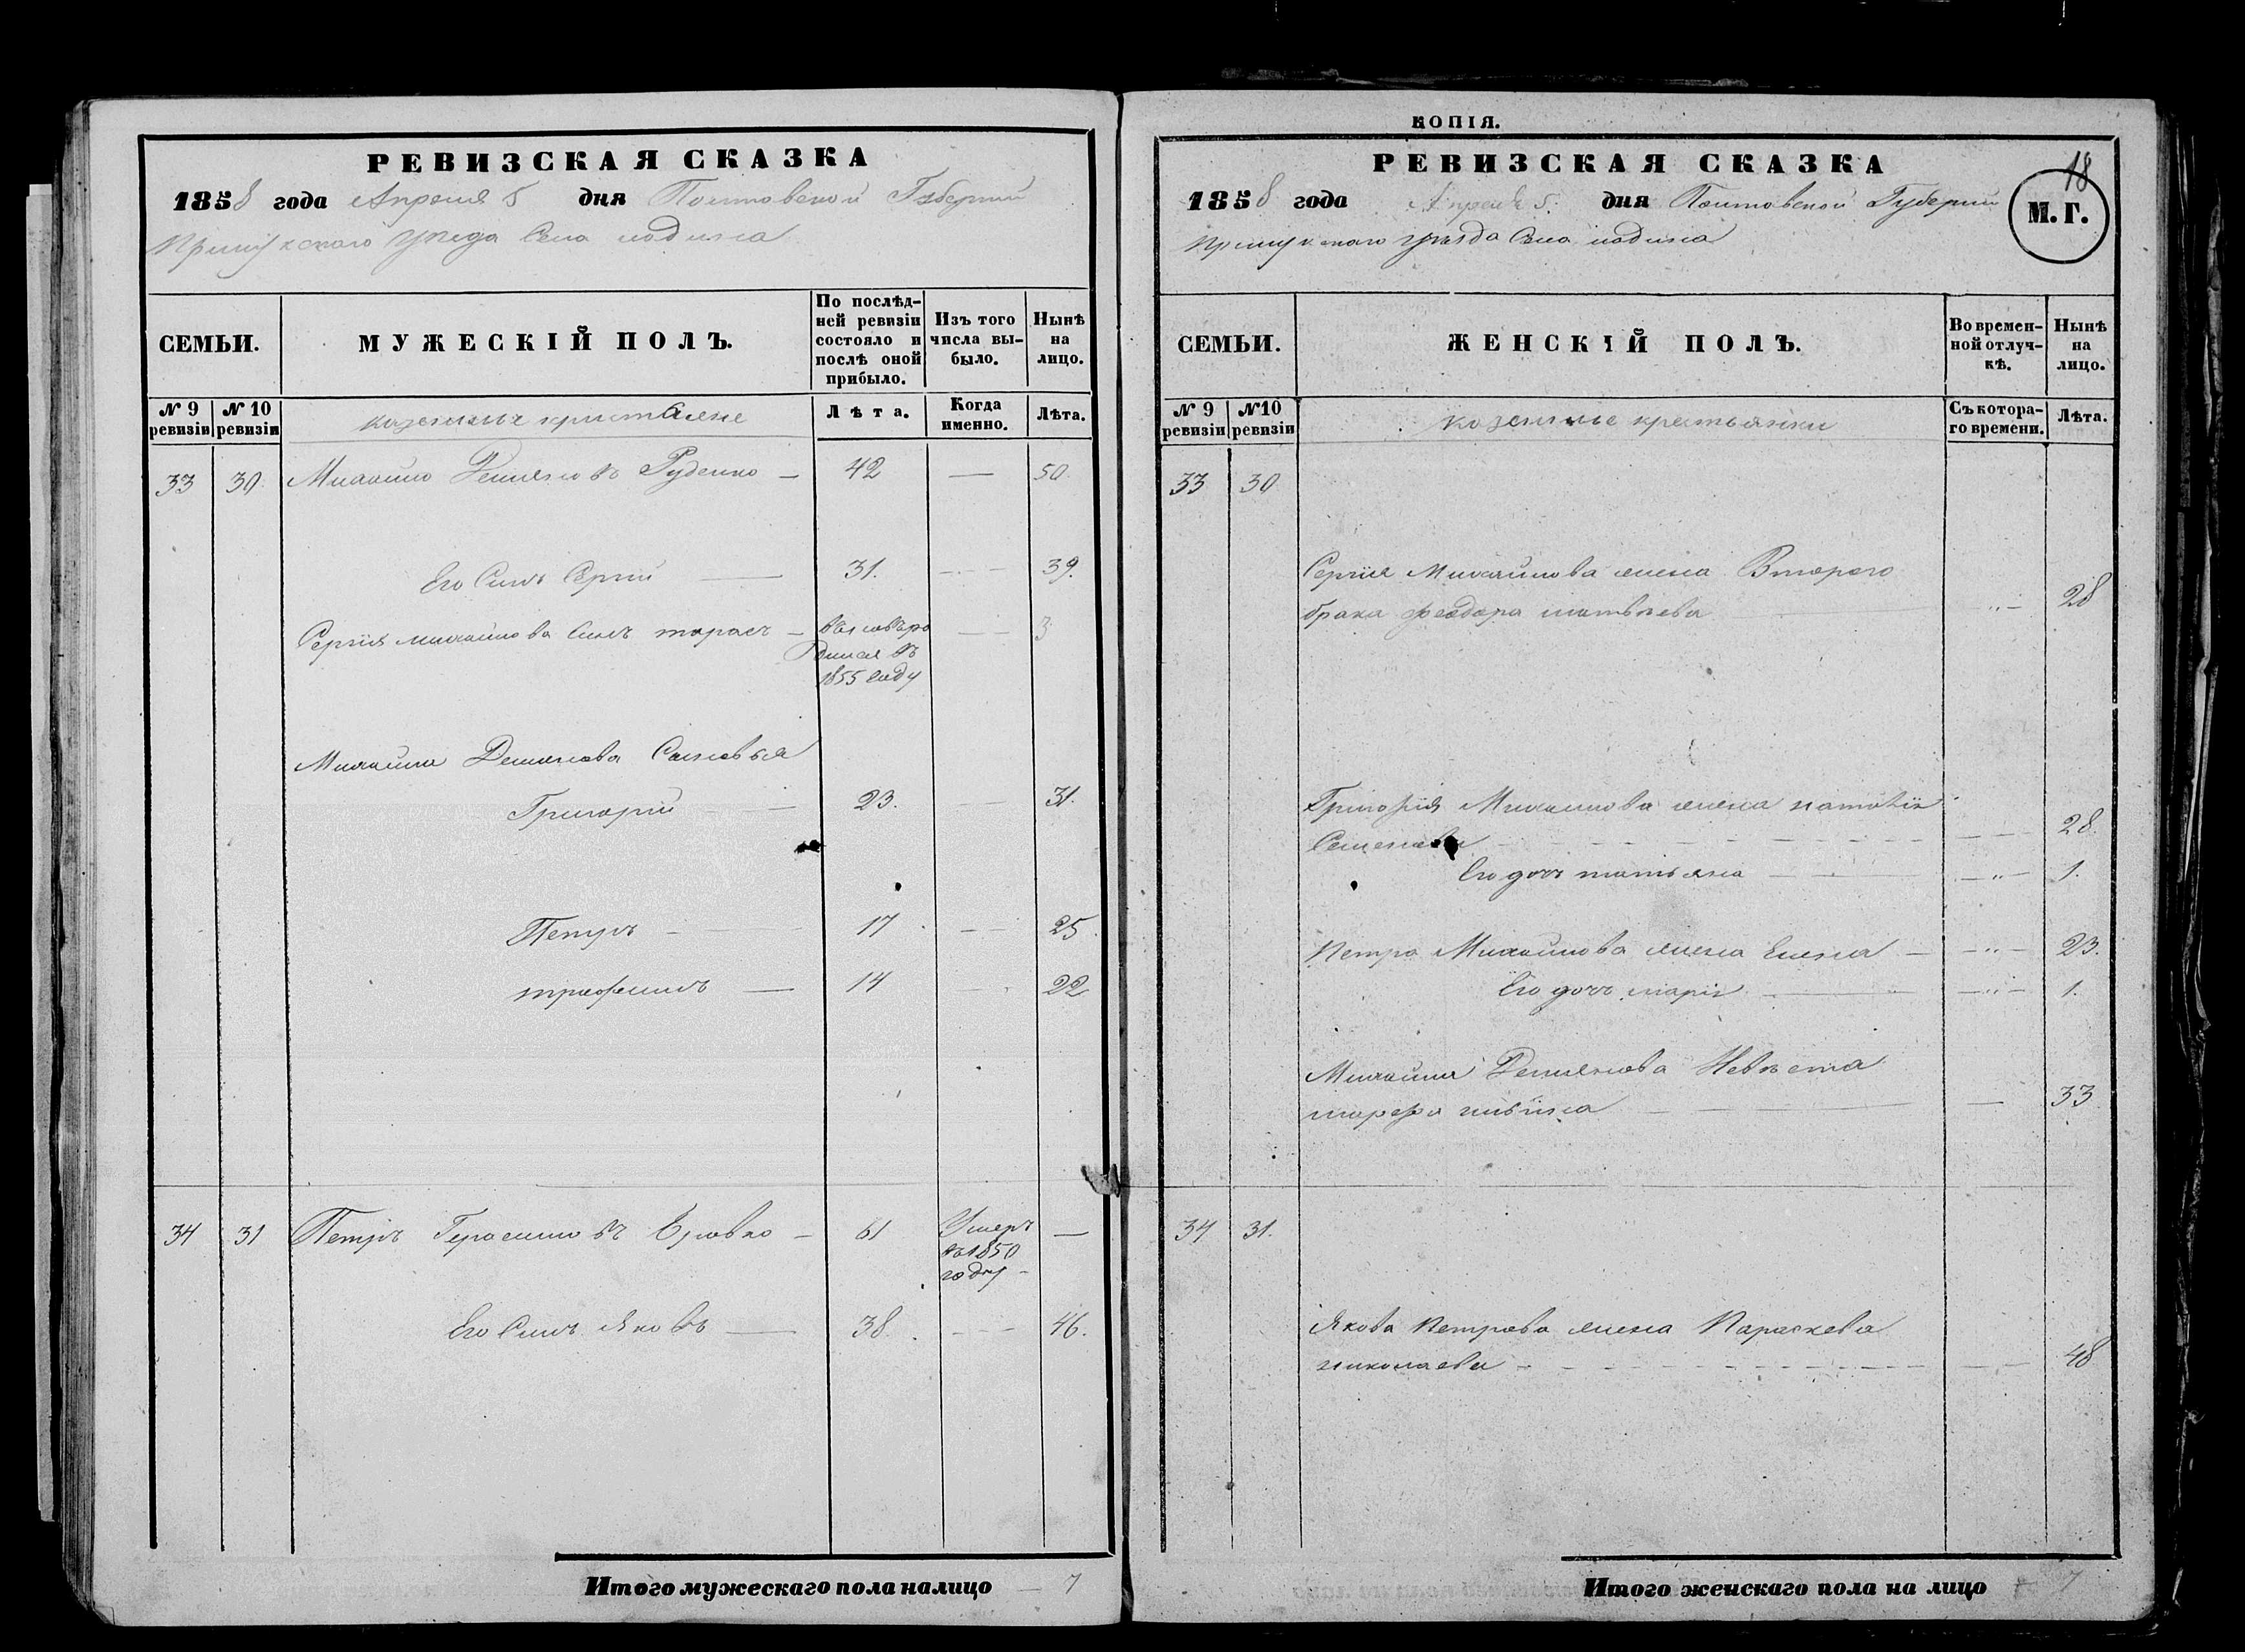 РЕВИЗСКАЯ СКАЗКА
1858 года Апреля 5 дня Полтавской Губернии
Прилукского уезда Села
СЕМЬИ.
МУЖЕСКІЙ ПОЛЪ.
По послѣд-
ней ревизіи
состояло и
послѣ оной
прибыло.
Изъ того
числа вы-
было.
Нынѣ
на
лицо.
№ 9
ревизіи
№ 10
ревизіи
казенные
Лѣта.
Когда
именно.
Лѣта.
33 30 Михайло Демяновъ Руденко — 42 — 50
Его Синъ Сергій — 31. — 39.
Сергія михайлова Синъ тарасъ — 3
1855 году
Михайла Демянова Сыновья
Григорій — 23. — 31.
Петръ — 17 — 25.
трофимъ — 14 — 22
34 31 Петръ Герасимовъ — 61 Умеръ —
въ 1850
году —
Его Синъ Яковъ — 38. — 46.
Итого мужескаго пола налицо — 7
КОПІЯ.
РЕВИЗСКАЯ СКАЗКА
18
М.Г.
1858 года Апреля 5. дня Полтавской Губернии
Прилукского уезда Села
СЕМЬИ.
ЖЕНСКІЙ ПОЛЪ.
Во времен-
ной отлуч-
кѣ.
Нынѣ
на
лицо.
№ 9
ревизіи
№10
ревизіи
казенные крестьянки
Съ котора-
го времени.
Лѣта.
33 30
Сергія Михайлова жена Второго
брака феодора матвеева — 28
Григорія Михайлова жена наталія
Семенова — 28.
Его дочъ татьяна — 1.
Петра Михайлова жена Елена — 23.
Его дочъ марія — 1.
Михайла Демянова Невеста
марфа — 33
34 31.
Якова Петрова жена Параскева
николаева — 48
Итого женскаго пола на лицо 7